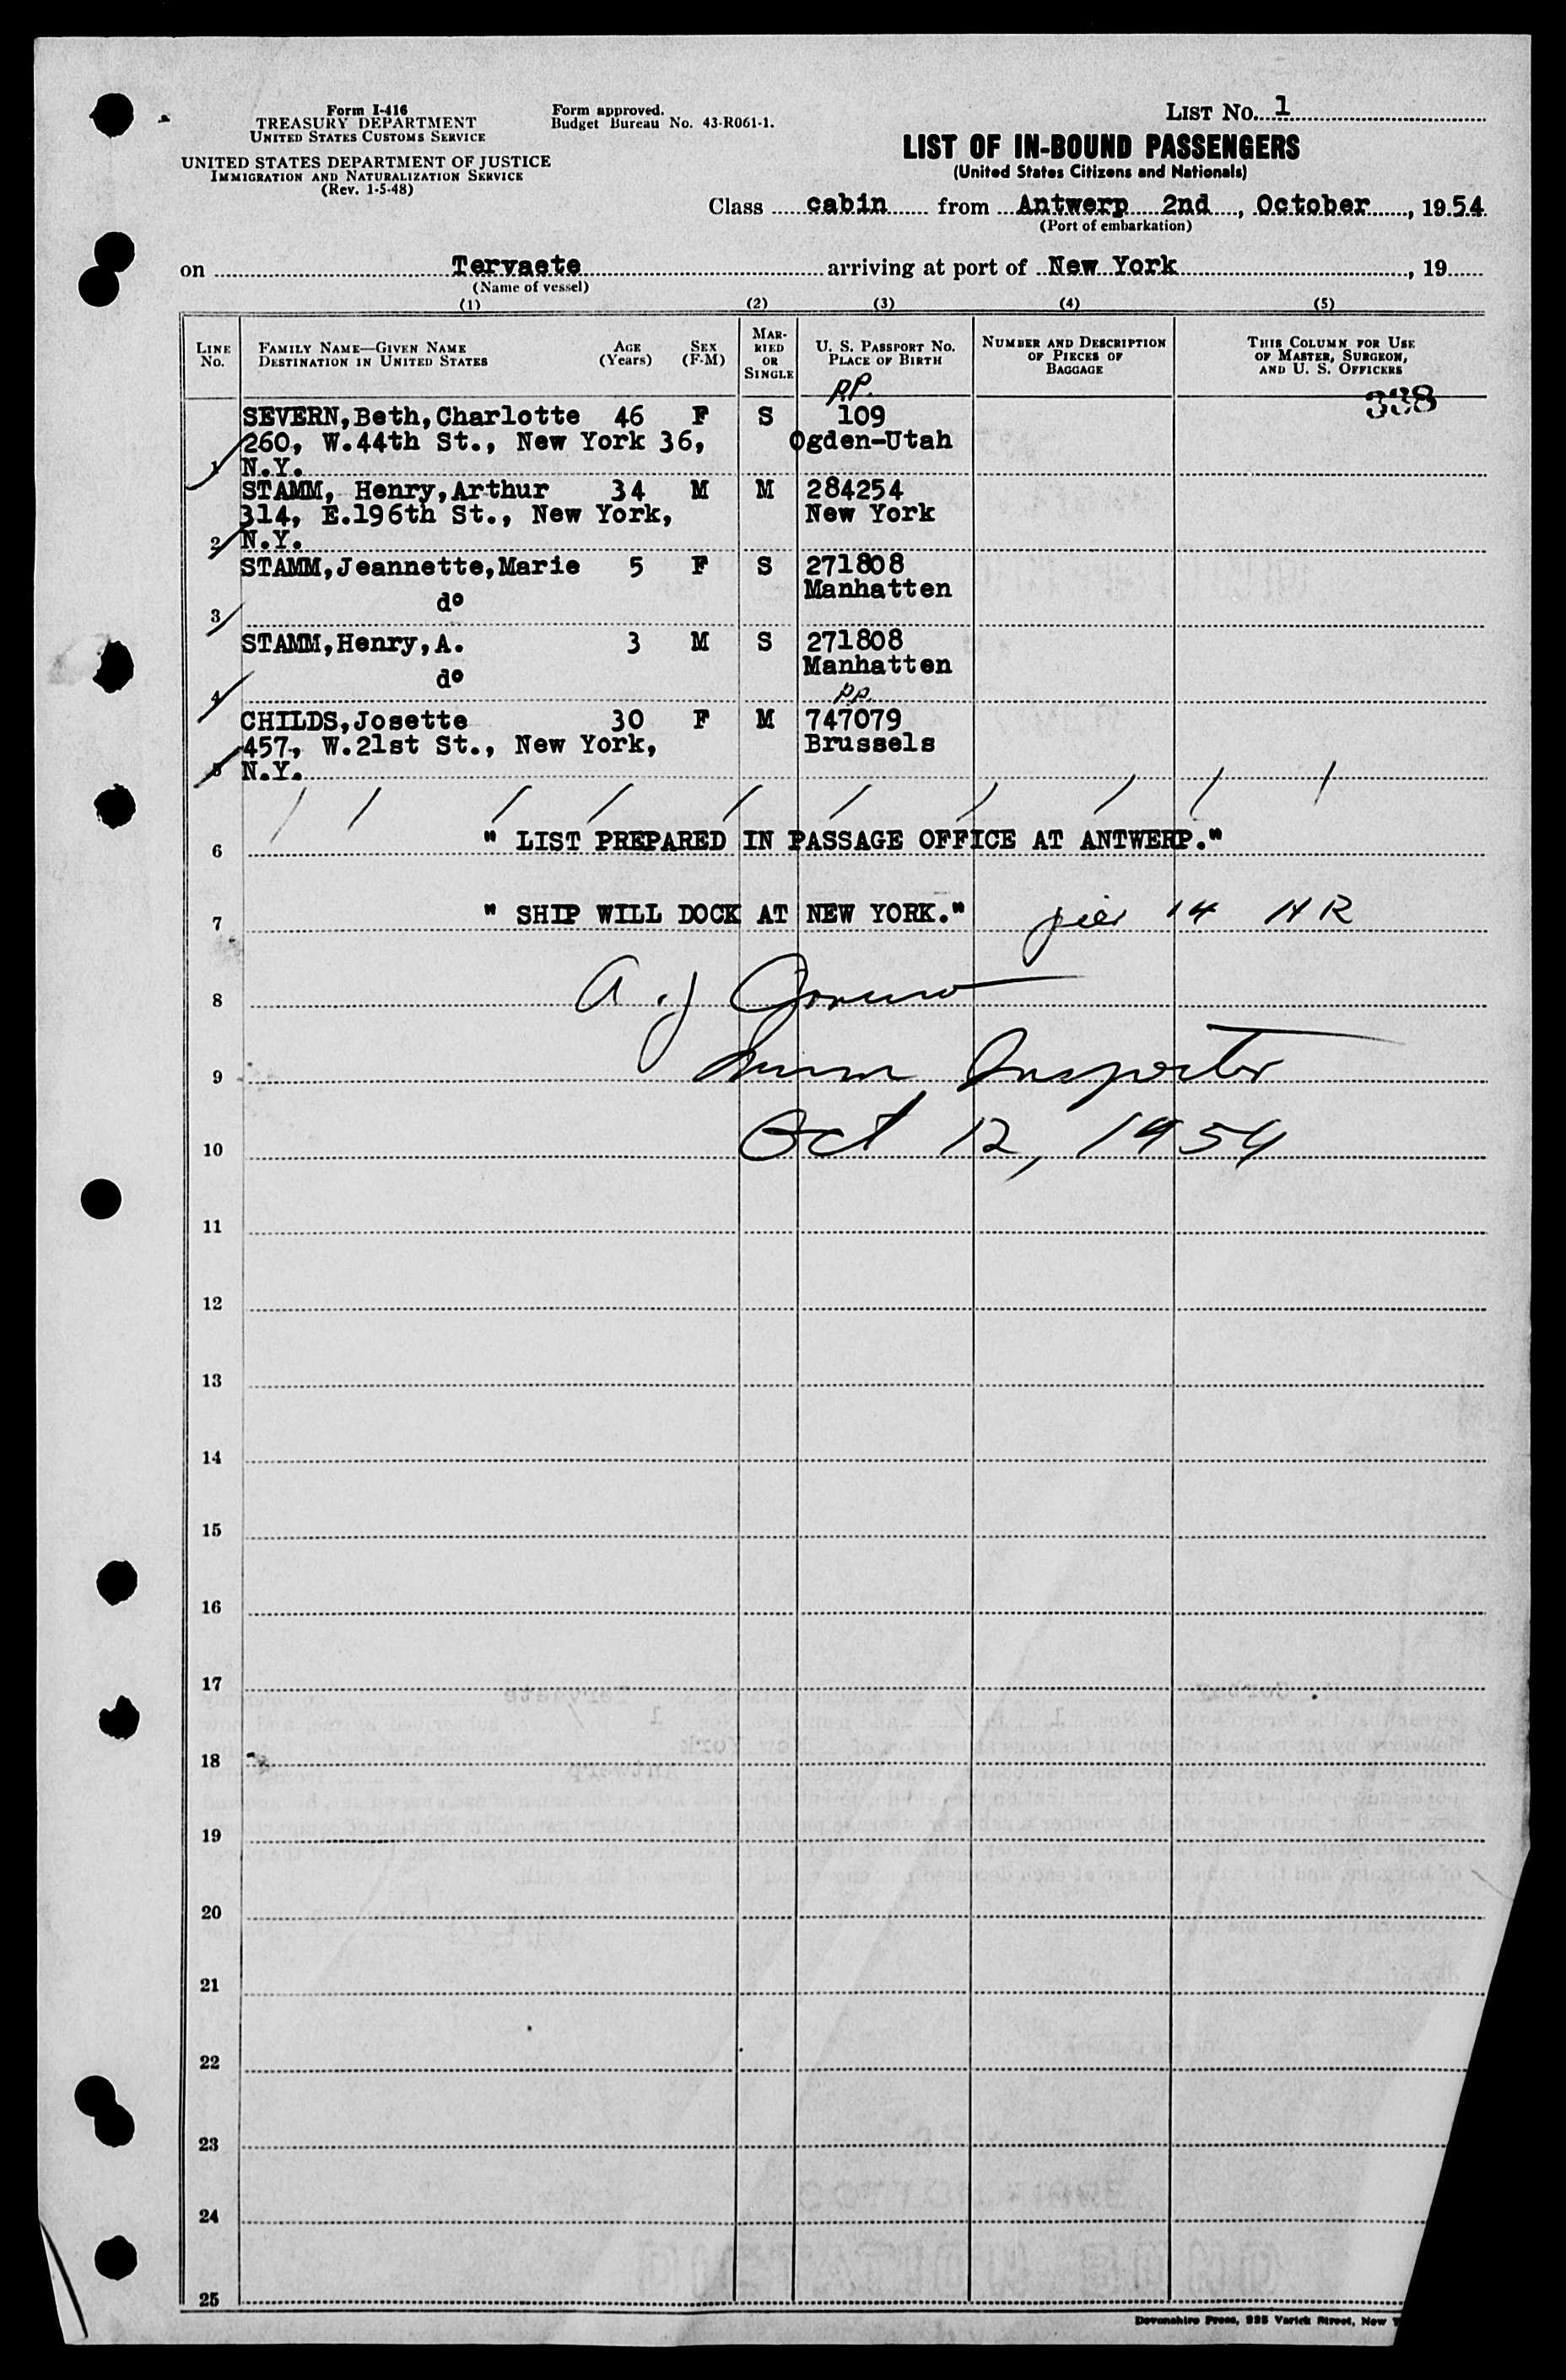 Form I-416
TREASURY DEPARTMENT
UNITED STATES CUSTOMS SERVICE
UNITED STATES DEPARTMENT OF JUSTICE
IMMIGRATION AND NATURALIZATION SERVICE
(Rev. 1-5-48)
Form approved.
Budget Bureau No. 43-R061-1.
LIST No. 1
LIST OF IN-BOUND PASSENGERS
(United States Citizens and Nationals)
Class cabin from Antwerp 2nd, October, 1954
(Port of embarkation)
on Tervaete arriving at port of New York, 19
(Name of vessel)
(1) (2) (3) (4) (5)
LINE No. FAMILY NAME—GIVEN NAME DESTINATION IN UNITED STATES AGE (Years) SEX (F-M) MARRIED OR SINGLE U. S. PASSPORT No. PLACE OF BIRTH NUMBER AND DESCRIPTION OF PIECES OF BAGGAGE THIS COLUMN FOR USE OF MASTER, SURGEON, AND U. S. OFFICERS
PP. 338
SEVERN,Beth,Charlotte 46 F S 109
260, W.44th St., New York 36, Ogden-Utah
1 N.Y.
STAMM, Henry,Arthur 34 M M 284254
314, E.196th St., New York, New York
2 N.Y.
STAMM,Jeannette,Marie 5 F S 271808
Manhatten
do
3
STAMM,Henry,A. 3 M S 271808
Manhatten
do
4 PP.
CHILDS,Josette 30 F M 747079
457, W.21st St., New York, Brussels
5 N.Y.
/ / / / / / / / / /
6 " LIST PREPARED IN PASSAGE OFFICE AT ANTWERP."
7 " SHIP WILL DOCK AT NEW YORK." pier 14 NR
8 A. J
9 Immn Inspector
10 Oct 12, 1954
11
12
13
14
15
16
17
18
19
20
21
22
23
24
25
Devonshire Press, 225 Varick Street, New